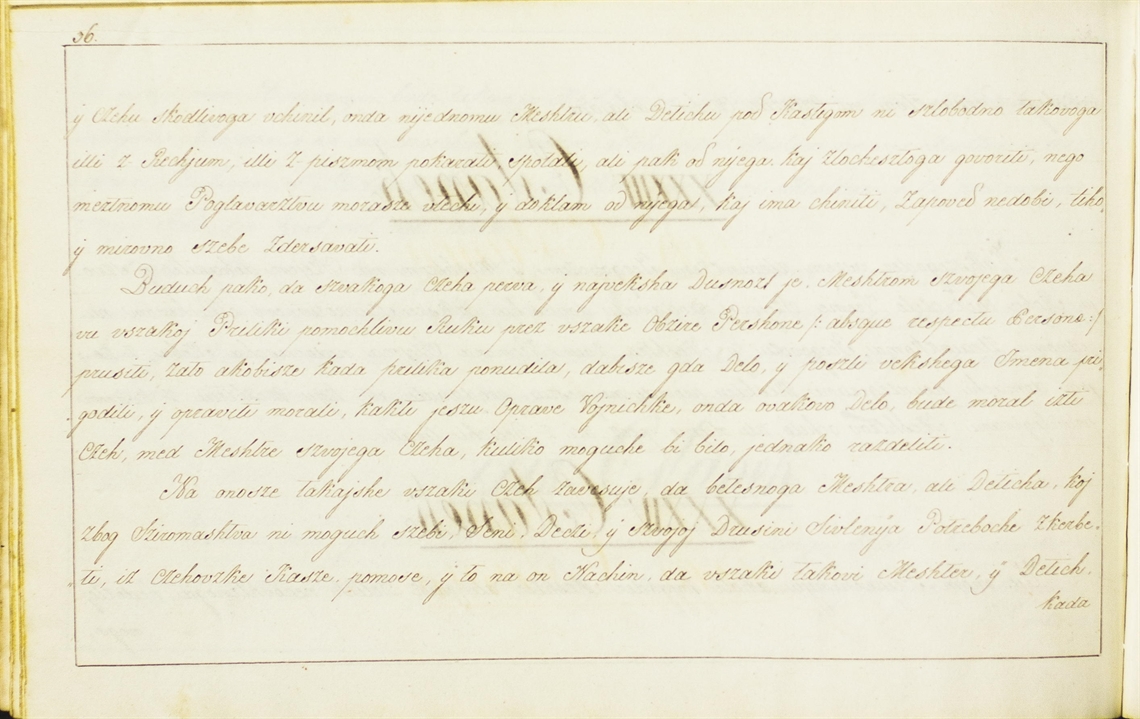 36.
ÿ Czehu skodlivoga vchinil, onda nijednomu Meshtru, ali Detichu pod Kastigom ni szlobodno takovoga
illi z-Rechjum, illi z-piszmom pokarati, spotati, ali pak od njega kaj zlochesztoga govoriti, nego
meztnomu Poglavarztvu morasze vlechi, ÿ doklam od njega, kaj ima chiniti, Zapoved nedobi, tiho,
ÿ mirovno szebe zdersavati.
Buduch pako, da szvakoga Czeha perva, ÿ najveksha Dusnozt je, Meshtrom szvojega Czeha
vu vszakoj Priliki pomochlivu Ruku prez vszake Obzire Pershone /: absque respectu Personæ :/
prusiti, zato akobisze kada prilika ponudila, dabisze gda Delo, ÿ poszli vekshega Imena pri,
goditi, ÿ opraviti morali, kakti jeszu Oprave Vojnichke, onda ovakovo Delo, bude moral izti
Czeh, med Meshtre szvojega Czeha, kuliko moguche bi bilo, jednako razdeliti.
Na onosze takajshe vszaki Czeh zavesuje da betesnoga Meshtra, ali Deticha, koj
zbog Sziromashtva ni moguch szebi, Seni, Deczi, ÿ Szvojoj Drusini Sivlenÿa Potreboche zkerbe,
ti, iz Czehovzke Kasze, pomose, ÿ to na on Nachin, da vszaki takovi Meshter, ÿ Detich,
kada